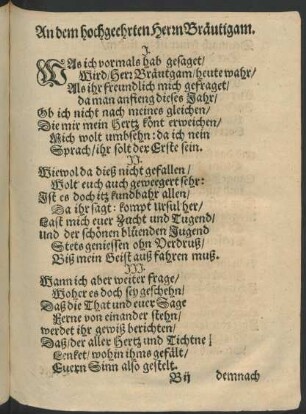 An dem hochgeehrten Herrn Bräutigam.
I.
WAs ich vormals hab gesaget/
Wird/Herr Bräutgam/heute wahr/
Als ihr freundlich mich gefraget/
da man anfieng dieses Jahr/
Ob ich nicht nach meines gleichen/
Die mir mein Hertz könt erweichen/
Mich wolt umbsehn: da ich nein
Sprach/ihr solt der Erste sein.
II.
Wiewol da dieß nicht gefallen/
Wolt euch auch gewegert sehr:
Ist es doch itz kundbahr allen/
Da ihr sagt: kompt Ursul her/
Last mich euer Zucht und Tugend/
Und der schönen blüenden Jugend
Stets geniessen ohn Verdruß/
Biß mein Geist auß fahren muß.
III.
Wann ich aber weiter frage/
Woher es doch sey geschehn/
Daß die That und euer Sage
Ferne von einander stehn/
werdet ihr gewiß berichten/
Daß/der aller Hertz und Tichtne
Lencket/wohin ihms gefält/
Euern Sinn also gestelt.
Bij demnach